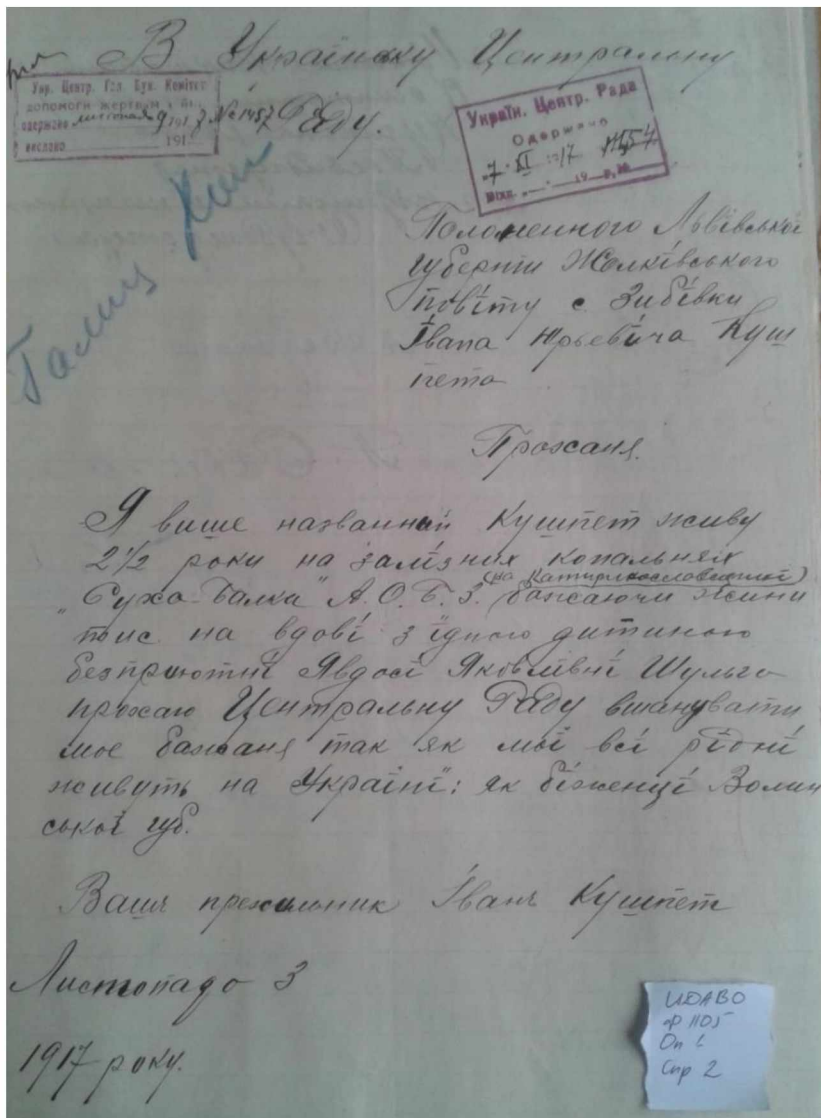 В Українску Центральну
Раду.
Укр. Центр. Гол. Бук. Комітет
допомоги жертвам війн.
одержано листопада 9 1917 № 1457
вислано 191
Україн. Центр. Рада
Одержано
"7" XI 1917
Відп. " " 19 р. №
Галиц
Полоненного Львівської
губерти Жолківського
повіту с. Зибівки
Івана Юрьевича Куш
пета
Прохання.
Я више названний Кушпет живу
2½ роки на залізних копальнях
(на Катиринославщині)
"Суха-Балка" А.О.Б.З. бажаючи жини
тис на вдові з їдною дитиною
безприютні Явдосі Яковлівні Шульго
прохаю Центральну Раду вшанувати
мое бажаня так як мої всі рідні
живуть на Україні: як біженці Волин
ської губ.
Вашъ прохильник Іванъ Кушпет
Листопадо 3
1917 року.
ЦДАВО
ф 1105
Оп 1
Спр 2